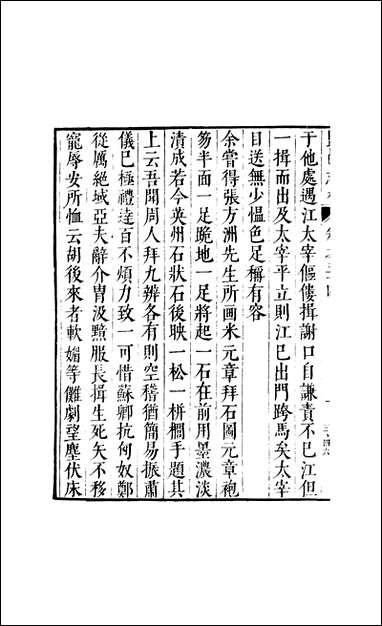 于他處遇江太宰傴僂揖謝口自謙責不已江但
一揖而出及太宰平立則江已出門跨馬矣太宰
目送無少慍色足稱有容
余嘗得張方洲先生所画米元章拜石圖元章袍
笏半面一足跪地一足將起一石在前用墨濃淡
漬成若今英州石狀石後映一松一栟櫚手題其
上云吾聞周人拜九辨各有則空稽猶簡易振肅
儀已極禮逹百不煩力致一可惜蘇卿抗匈奴鄭
從厲絶域亞夫辭介胄汲黯服長揖生死矢不移
寵辱安所恤云胡後來者軟媚等儺劇望塵伏床